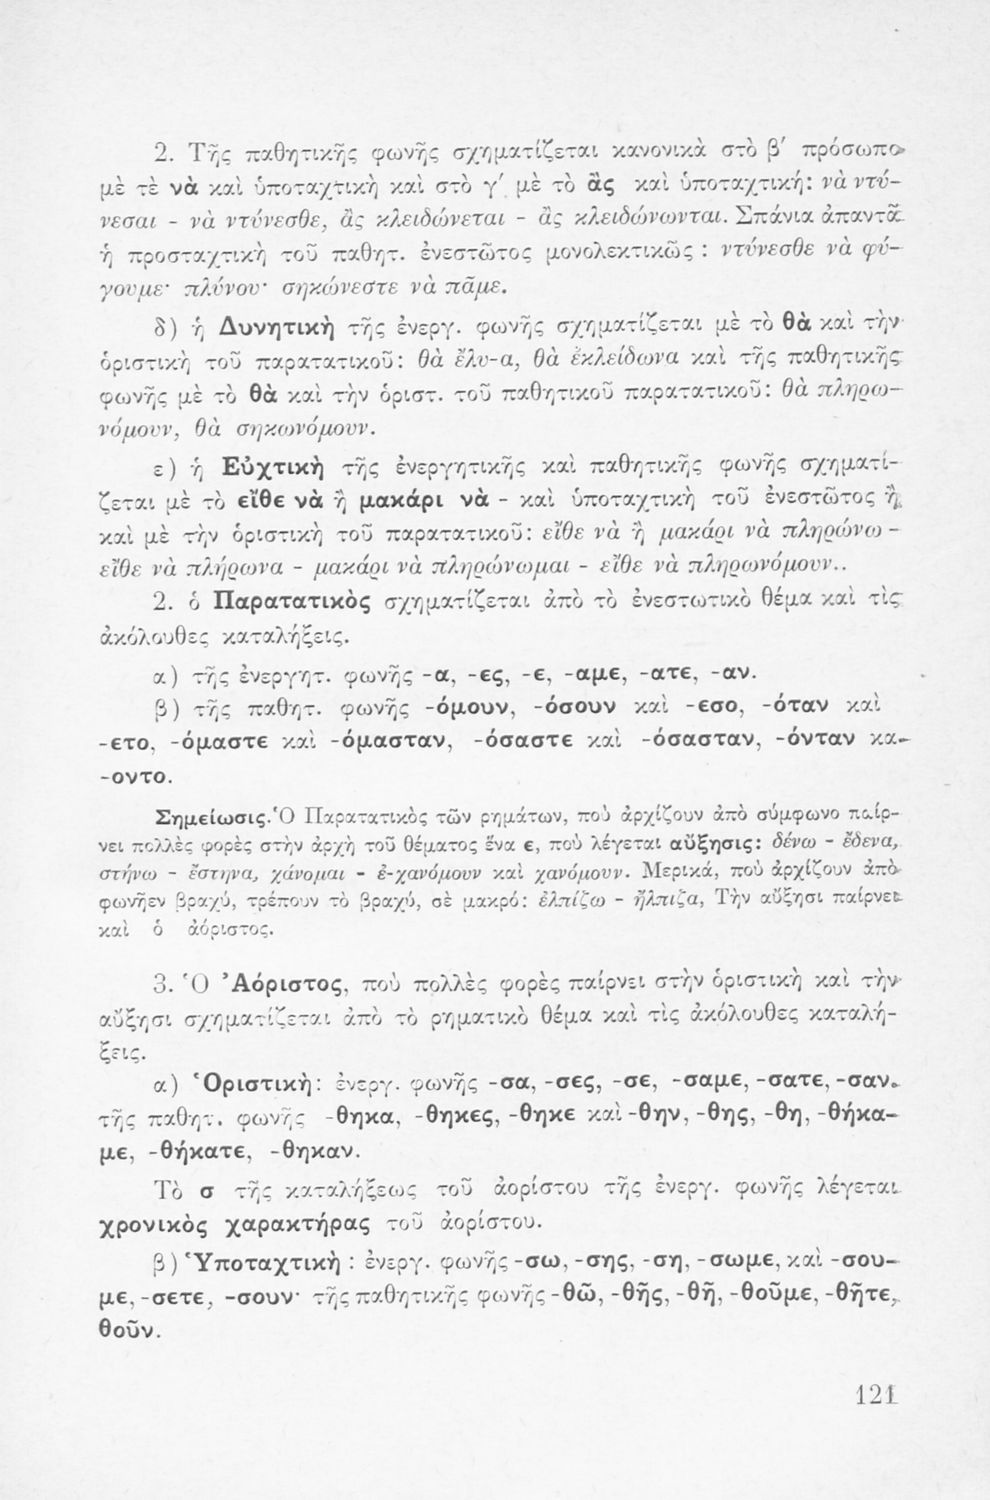 2. Τῆς παθητικῆς φωνῆς σχηματίζεται κανονικὰ στὸ β′ πρόσωπο
μὲ τὲ νὰ καὶ ὑποταχτικὴ καὶ στὸ γ′ μὲ τὸ ἂς καὶ ὑποταχτική: νὰ ντύ-
νεσαι - νὰ ντύνεσθε, ἂς κλειδώνεται - ἂς κλειδώνωνται. Σπάνια ἀπαντᾶ
ἡ προσταχτικὴ τοῦ παθητ. ἐνεστῶτος μονολεκτικῶς : ντύνεσθε νὰ φύ-
γουμε· πλύνου· σηκώνεστε νὰ πᾶμε.
δ) ἡ Δυνητικὴ τῆς ἐνεργ. φωνῆς σχηματίζεται μὲ τὸ θὰ καὶ τὴν
ὁριστικὴ τοῦ παρατατικοῦ: θὰ ἔλυ-α, θὰ ἐκλείδωνα καὶ τῆς παθητικῆς
φωνῆς μὲ τὸ θὰ καὶ τὴν ὁριστ. τοῦ παθητικοῦ παρατατικοῦ: θὰ πληρω-
νόμουν, θὰ σηκωνόμουν.
ε) ἡ Εὐχτικὴ τῆς ἐνεργητικῆς καὶ παθητικῆς φωνῆς σχηματί-
ζεται μὲ τὸ εἴθε νὰ ἢ μακάρι νὰ - καὶ ὑποταχτικὴ τοῦ ἐνεστῶτος ἢ
καὶ μὲ τὴν ὁριστικὴ τοῦ παρατατικοῦ: εἴθε νὰ ἢ μακάρι νὰ πληρώνω -
εἴθε νὰ πλήρωνα - μακάρι νὰ πληρώνωμαι - εἴθε νὰ πληρωνόμουν..
2. ὁ Παρατατικὸς σχηματίζεται ἀπὸ τὸ ἐνεστωτικὸ θέμα καὶ τὶς
ἀκόλουθες καταλήξεις.
α) τῆς ἐνεργητ. φωνῆς -α, -ες, -ε, -αμε, -ατε, -αν.
β) τῆς παθητ. φωνῆς -όμουν, -όσουν καὶ -εσο, -όταν καὶ
-ετο, -όμαστε καὶ -όμασταν, -όσαστε καὶ -όσασταν, -όνταν κα-
-οντο.
Σημείωσις. Ὁ Παρατατικὸς τῶν ρημάτων, ποὺ ἀρχίζουν ἀπὸ σύμφωνο παίρ-
νει πολλὲς φορὲς στὴν ἀρχὴ τοῦ θέματος ἕνα ε, ποὺ λέγεται αὔξησις: δένω - ἔδενα,
στήνω - ἔστηνα, χάνομαι - ἐ-χανόμουν καὶ χανόμουν. Μερικά, ποὺ ἀρχίζουν ἀπὸ
φωνῆεν βραχύ, τρέπουν τὸ βραχύ, σὲ μακρό: ἐλπίζω - ἤλπιζα, Τὴν αὔξησι παίρνει
καὶ ὁ ἀόριστος.
3. Ὁ Ἀόριστος, ποὺ πολλὲς φορὲς παίρνει στὴν ὁριστικὴ καὶ τὴν
αὔξησι σχηματίζεται ἀπὸ τὸ ρηματικὸ θέμα καὶ τὶς ἀκόλουθες καταλή-
ξεις.
α) Ὁριστικὴ: ἐνεργ. φωνῆς -σα, -σες, -σε, -σαμε, -σατε, -σαν.
τῆς παθητ. φωνῆς -θηκα, -θηκες, -θηκε καὶ -θην, -θης, -θη, -θήκα-
με, -θήκατε, -θηκαν.
Τὸ σ τῆς καταλήξεως τοῦ ἀορίστου τῆς ἐνεργ. φωνῆς λέγεται
χρονικὸς χαρακτήρας τοῦ ἀορίστου.
β) Ὑποταχτικὴ : ἐνεργ. φωνῆς -σω, -σης, -ση, -σωμε, καὶ -σου-
με, -σετε, -σουν· τῆς παθητικῆς φωνῆς -θῶ, -θῆς, -θῆ, -θοῦμε, -θῆτε,
θοῦν.
121